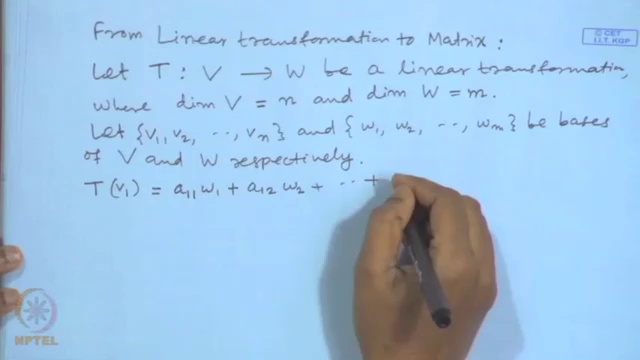 © CET
I.I.T. KGP
From Linear transformation to Matrix :
Let T : V → W be a linear transformation,
where dim V = n and dim W = m.
Let {v₁, v₂, ..., vₙ} and {w₁, w₂, ..., wₘ} be bases
of V and W respectively.
T(v₁) = a₁₁w₁ + a₁₂w₂ + ... +
NPTEL